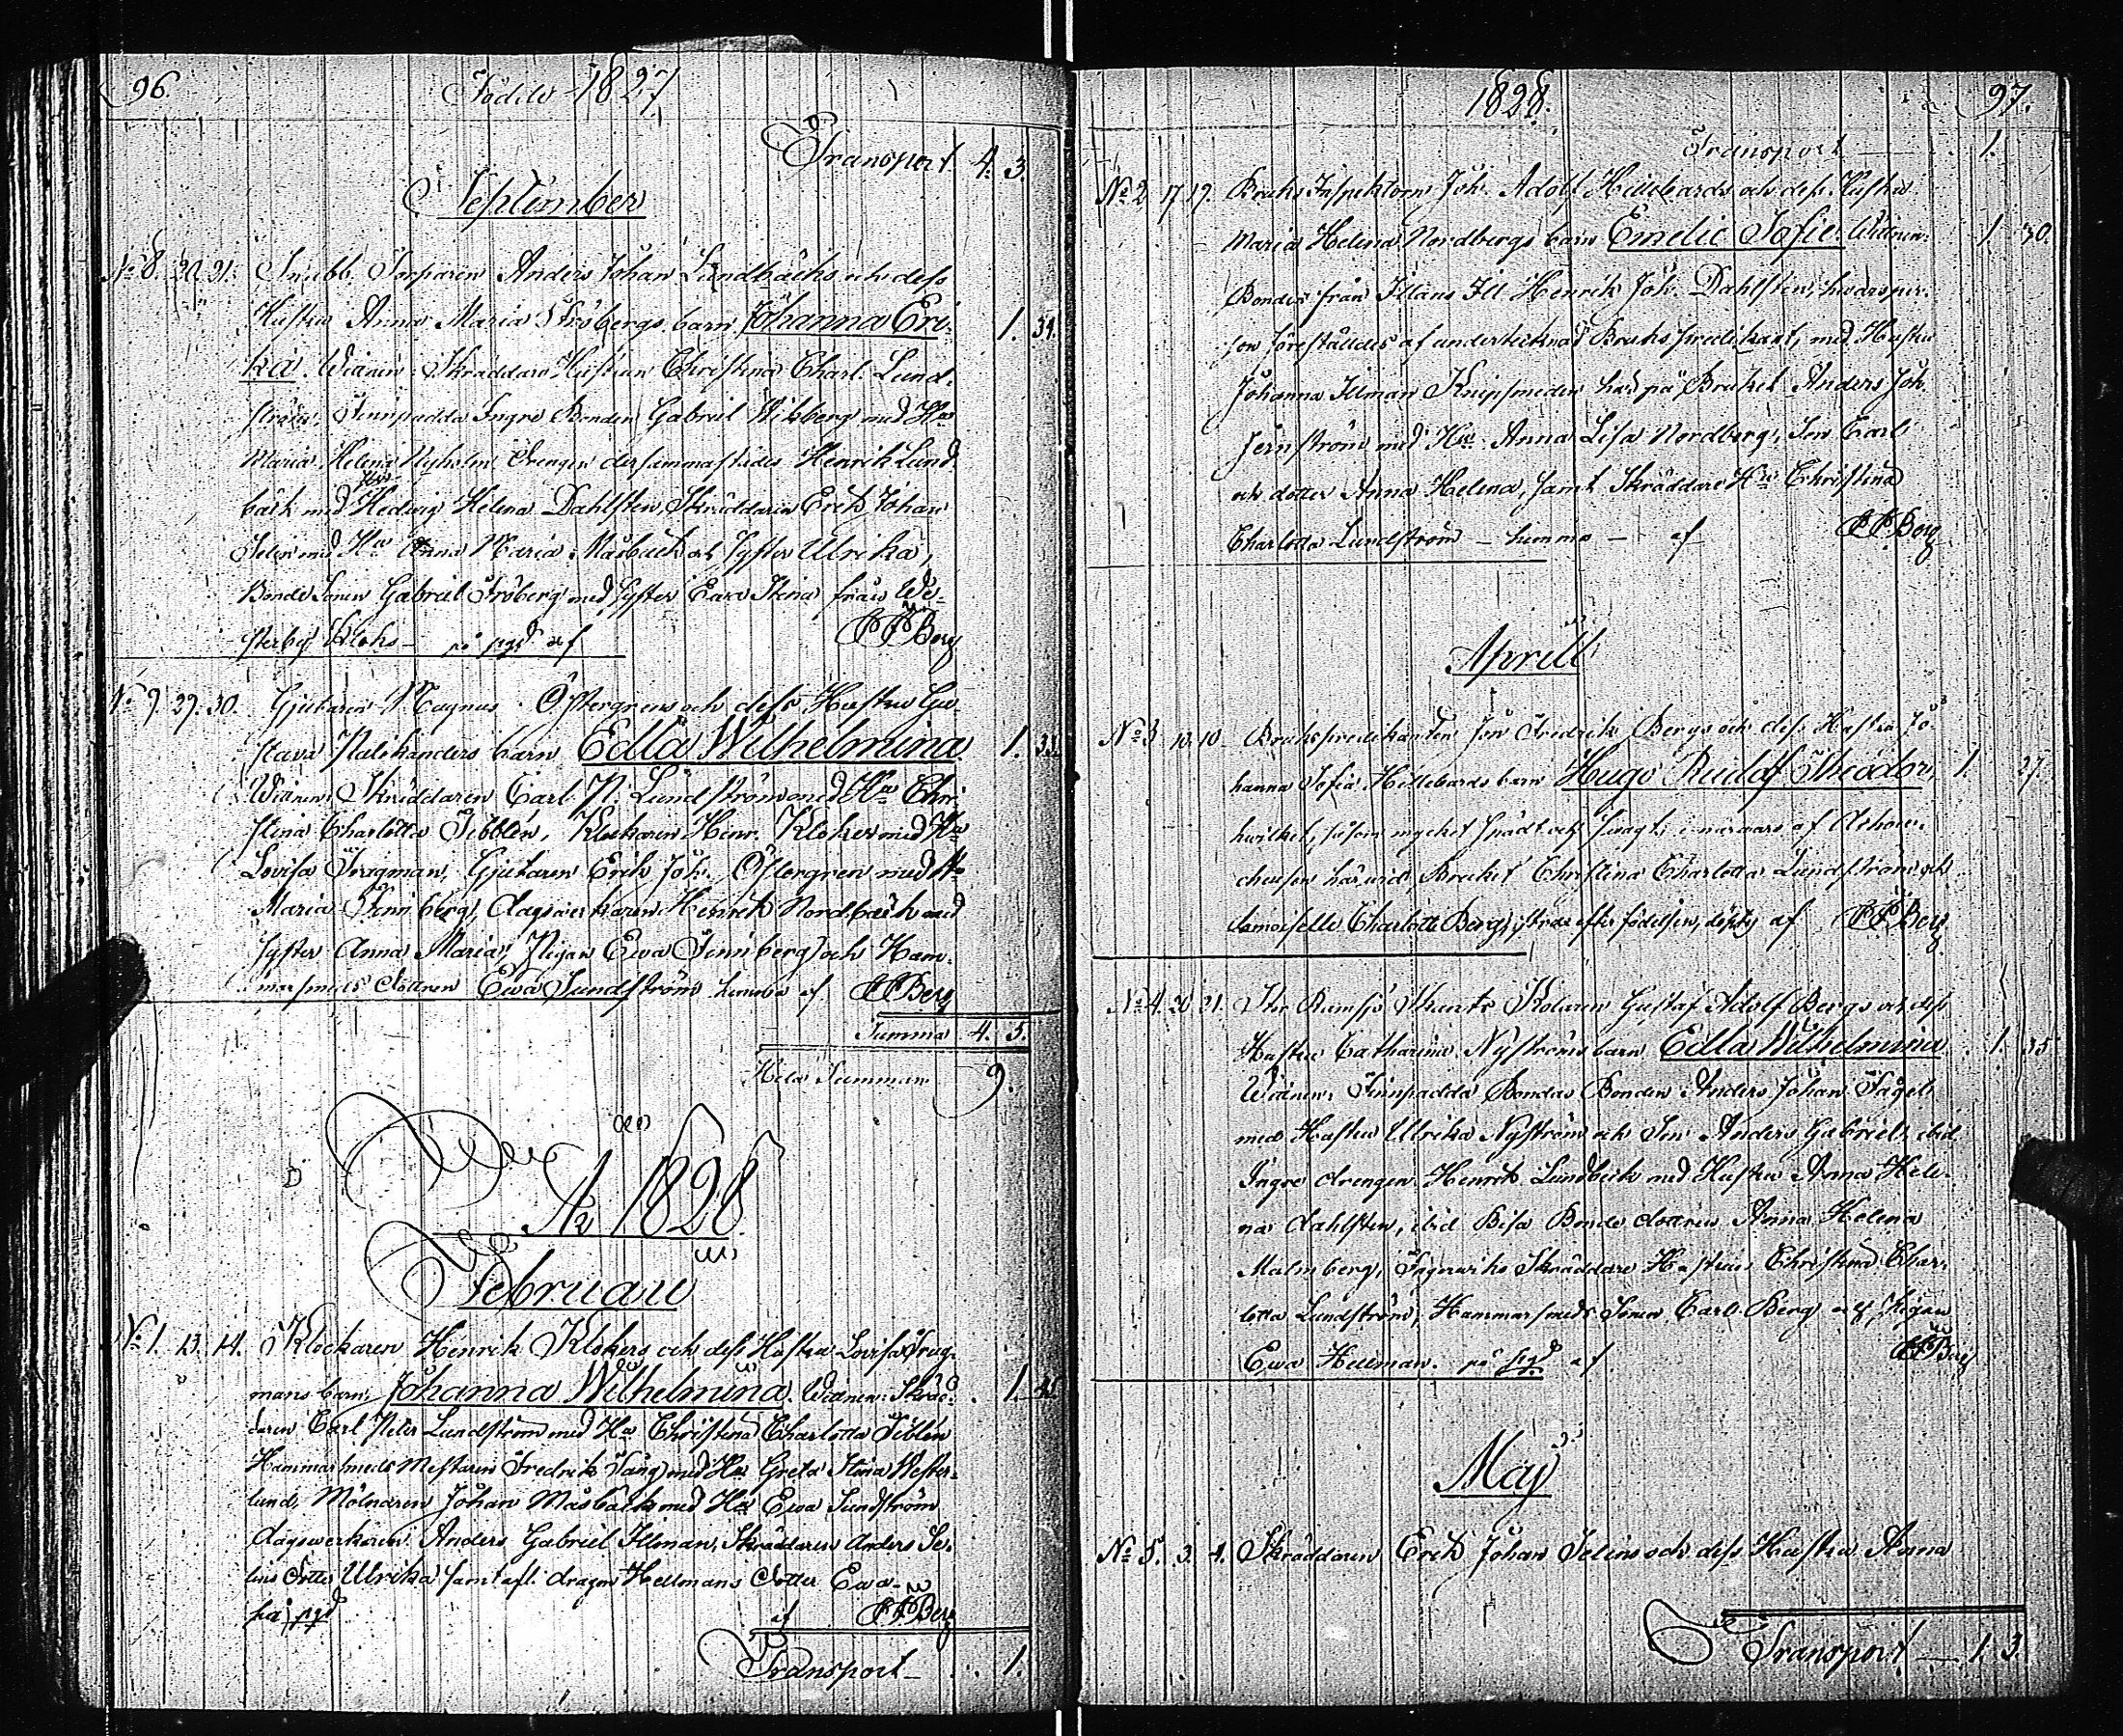 96.
Födde 1827
Transport. 4. 3.
September
No 8. 20. 21. Snäbb. Torparen Anders Johan Lundbäcks och dess
Hustru Anna Maria Fröbergs barn Johanna Eri- 1. 31.
ka. Witnen: Skräddare Hustrun Christina Charl. Lund-
ström, Finnpadda Ingre Bonden Gabriel Wikberg med Hu
Maria Helena Nyholm Drengen dersammastädes Henrik Lund
bäck med Hedwig Helena Dahlsten, Skräddaren Erik Johan
Selin med Hu Anna Maria Måsbäck och Syster Ulrika,
Bonde Sonen Gabriel Fröberg med Syster Eava Stina från We-
sterby Kloks – på sgd af JFBerg
No 9. 29. 30. Gjutaren Magnus Östergrens och dess Hustru Gu-
stava Palikanders barn Edla Wilhelmina 1. 33.
Witnen: Skräddaren Carl P. Lundström med Hu Chri-
stina Charlotta Tibblén, Klockaren Henr. Klokers med Hu
Lovisa Trugman, Gjutaren Erik Joh. Östergren med Hu
Maria Finnberg, dagsverkaren Henrik Nordbäck med
Syster Anna Maria, Pigan Ewa Finnberg och Ham-
marsmeds dottren Ewa Sundström hemma af JFBerg
Summa 4. 5.
Hela Summan 9.
År 1828
Februari
No 1. 13. 14. Klockaren Henrik Klokers och dess Hustru Lovisa Trug-
mans barn, Johanna Wilhelmina. Witnen: Skräd- 1.
daren Carl Peter Lundström med Hu Christina Charlotta Tiblén
Hammarsmeds Mestaren Fredrik Tång med Hu Greta Stina Wester-
lund, Mölnaren Johan Måsbäck med Hu Ewa Sundström
dagswerkaren Anders Gabriel Illman, Skräddaren Anders Se-
lins dotter Ulrika samt afl. dragon Hellmans dotter Ewa
på sgd af JFBerg
Transport – 1.
1828. 97.
Transport 1.
No 2. 17. 19. Bruks Inspektorn Joh. Adolf Hillebards och dess Hustru
Maria Helena Nordbergs barn Emelie Sofie. Witnen: 1. 30.
Bonden från Illans Ill Henrik Joh. Dahlsten, hvars per-
son föreställdes af undertecknad Bruks predikant, med Hustru
Johanna Illman Knipsmeden här på Bruket Anders Joh.
Jernström med Hu Anna Lisa Nordberg, Son Carl
och dotter Anna Helena, samt Skräddare Hu Christina
Charlotta Lundström – hemma – af JFBerg
Aprill
No 3. 10. 10. Brukspredikanten Joh Fredrik Bergs och dess Hustru Jo-
hanna Sofia Hillebards barn Hugo Rudolf Theodor, 1. 27.
hvilket, såsom mycket spädt och swagt, i närvaro af Ackou-
cheusen härvid Bruket Christina Charlotta Lundström och
Demoiselle Charlotte Berg, strax efter födelsen, döptes af JFBerg
No 4. 20. 21. Stor Ramsjö Skants Kolaren Gustaf Adolf Bergs och dess
Hustru Catharina Nyströms barn Edla Wilhelmina. 1. 35
Witnen: Finnpadda Bondas Bonden Anders Johan Fågel
med Hustru Ulrika Nyström och Son Anders Gabriel, ibid
Ingre drengen Henrik Lundbäck med Hustru Anna Hele-
na Dahlsten, ibid Bisa Bonde dottren Anna Helena
Malmberg, Fagerwiks Skräddare Hustrun Christina Char-
lotta Lundström, Hammarsmeds Sonen Carl Berg och Pigan
Ewa Hellman. på sgd af JFBerg
Maj
No 5. 3. 4. Skräddaren Erik Johan Selins och dess Hustru Anna
Transport – 1. 3.